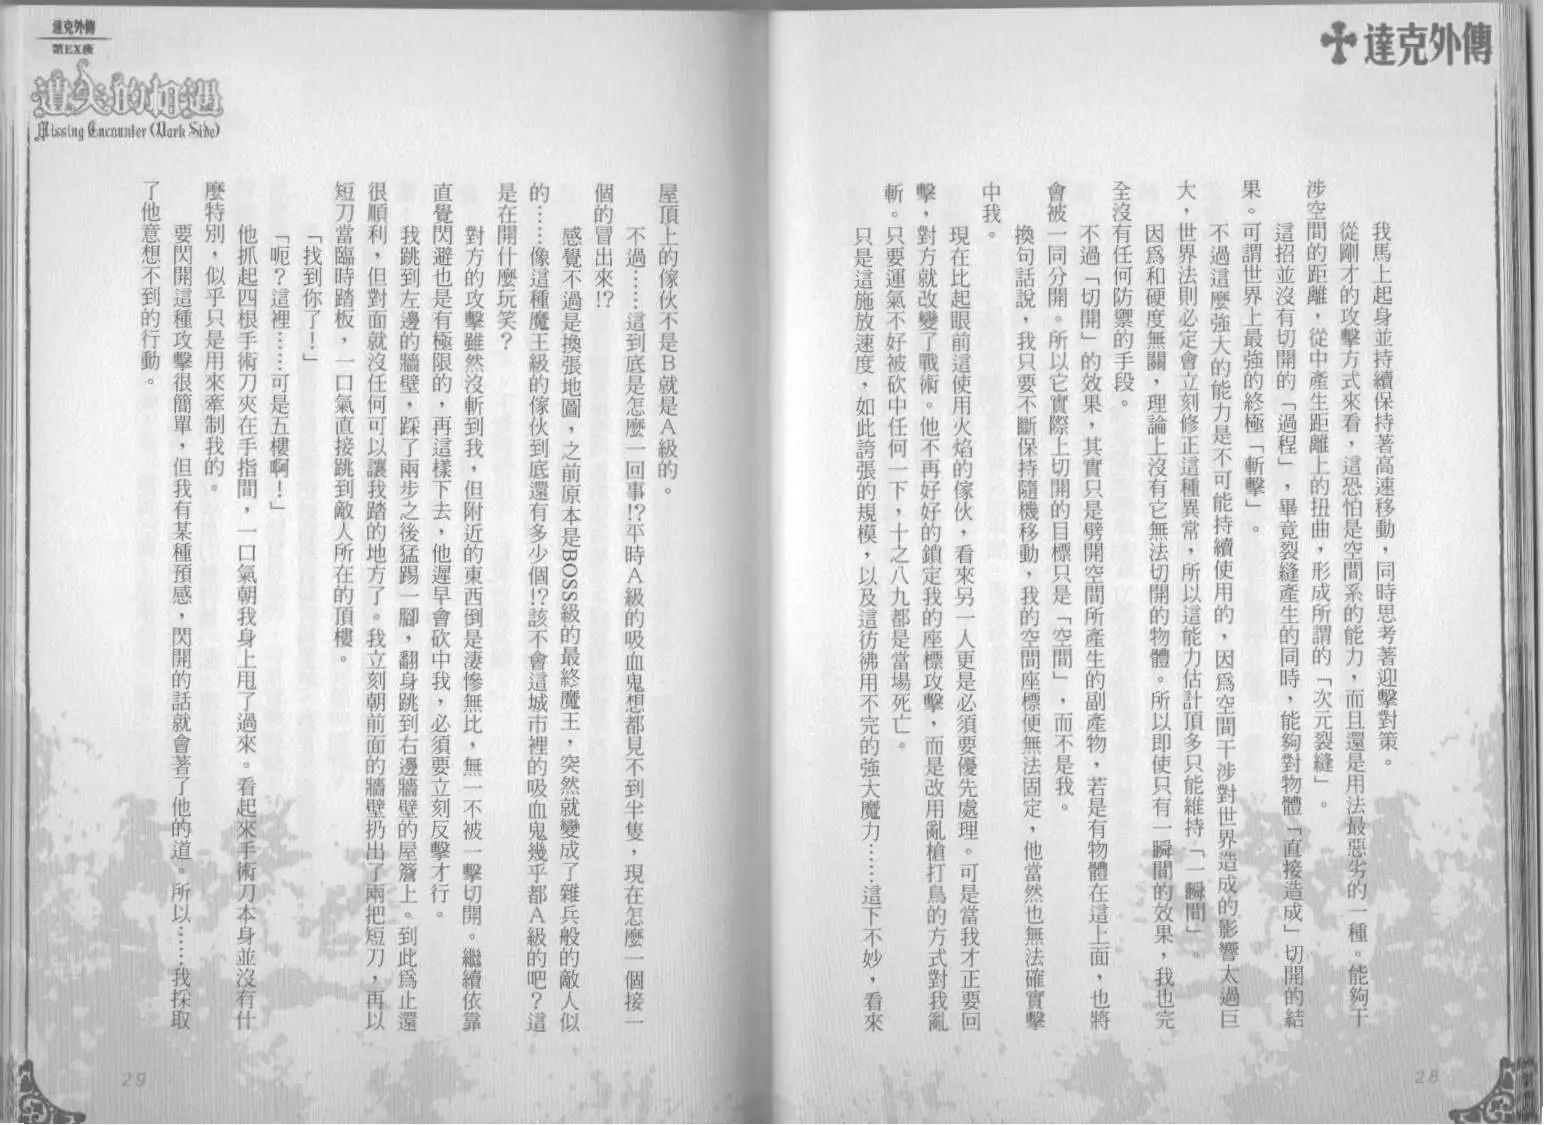 達克外傳
我馬上起身並持續保持著高速移動，同時思考著迎擊對策。
從剛才的攻擊方式來看，這恐怕是空間系的能力，而且還是用法最惡劣的一種。能夠干
涉空間的距離，從中產生距離上的扭曲，形成所謂的「次元裂縫」。
這招並沒有切開的「過程」，畢竟裂縫產生的同時，能夠對物體「直接造成」切開的結
果。可謂世界上最強的終極「斬擊」。
不過這麼強大的能力是不可能持續使用的，因為空間干涉對世界造成的影響太過巨
大，世界法則必定會立刻修正這種異常，所以這能力估計頂多只能維持「一瞬間」。
因為和硬度無關，理論上沒有它無法切開的物體。所以即使只有一瞬間的效果，我也完
全沒有任何防禦的手段。
不過「切開」的效果，其實只是劈開空間所產生的副產物，若是有物體在這上面，也將
會被一同分開。所以它實際上切開的目標只是「空間」，而不是我。
換句話說，我只要不斷保持隨機移動，我的空間座標便無法固定，他當然也無法確實擊
中我。
現在比起眼前這使用火焰的傢伙，看來另一人更是必須要優先處理。可是當我才正要回
擊，對方就改變了戰術。他不再好好的鎖定我的座標攻擊，而是改用亂槍打鳥的方式對我亂
斬。只要運氣不好被砍中任何一下，十之八九都是當場死亡。
只是這施放速度，如此誇張的規模，以及這彷彿用不完的強大魔力……這下不妙，看來
28
達克外傳
第EX夜
遺失的相遇
Missing Encounter (Dark Side)
屋頂上的傢伙不是B就是A級的。
不過……這到底是怎麼一回事!?平時A級的吸血鬼想都見不到半隻，現在怎麼一個接一
個的冒出來!?
感覺不過是換張地圖，之前原本是BOSS級的最終魔王，突然就變成了雜兵般的敵人似
的……像這種魔王級的傢伙到底還有多少個!?該不會這城市裡的吸血鬼幾乎都A級的吧？這
是在開什麼玩笑？
對方的攻擊雖然沒斬到我，但附近的東西倒是淒慘無比，無一不被一擊切開。繼續依靠
直覺閃避也是有極限的，再這樣下去，他遲早會砍中我，必須要立刻反擊才行。
我跳到左邊的牆壁，踩了兩步之後猛踢一腳，翻身跳到右邊牆壁的屋簷上。到此為止還
很順利，但對面就沒任何可以讓我踏的地方了。我立刻朝前面的牆壁扔出了兩把短刀，再以
短刀當臨時踏板，一口氣直接跳到敵人所在的頂樓。
「找到你了！」
「呃？這裡……可是五樓啊！」
他抓起四根手術刀夾在手指間，一口氣朝我身上甩了過來。看起來手術刀本身並沒有什
麼特別，似乎只是用來牽制我的。
要閃開這種攻擊很簡單，但我有某種預感，閃開的話就會著了他的道。所以……我採取
了他意想不到的行動。
29